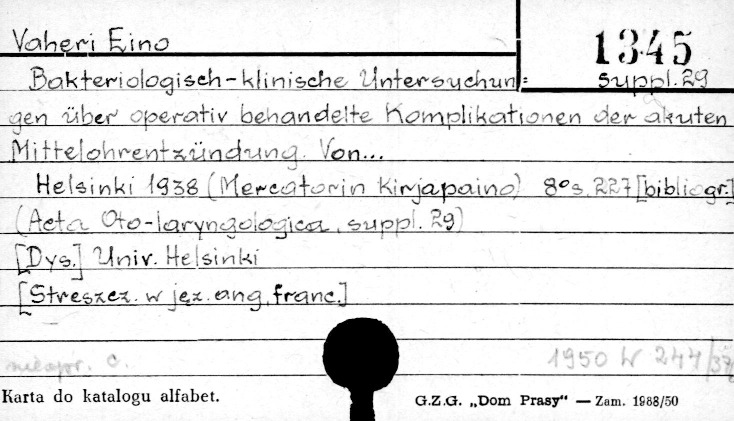 Vaheri Eino
1345
Bakteriologisch-klinische Untersuchun= suppl. 29
gen über operativ behandelte Komplikationen der akuten
Mittelohrentzündung. Von...
Helsinki 1938 (Mercatorin Kirjapaino) 8° s. 227 [bibliogr.]
(Acta Oto-laryngologica, suppl. 29)
[Dys.] Univ. Helsinki
[Streszcz. w jęz. ang, franc.]
1950 W 244/37
Karta do katalogu alfabet.
G.Z.G. „Dom Prasy" — Zam. 1988/50